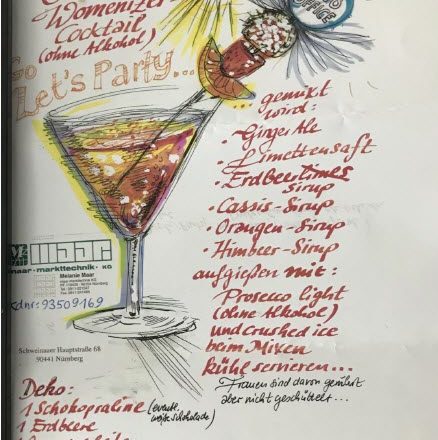 Womenizer
Cocktail
(ohne Alkohol)
Go
Let's Party...
OFFICE
...gemixt
wird:
• Ginger Ale
• Limettensaft
• Erdbeer
Sirup
• Cassis-Sirup
• Orangen-Sirup
• Himbeer-Sirup
aufgießen mit:
Prosecco light
(ohne Alkohol)
und crushed ice
beim Mixen
kühl servieren...
Frauen sind davon gerührt
aber nicht geschüttelt...
maar
maar-markttechnik KG
Melanie Maar
90441 Nürnberg
Kdnr: 93509469
Schweinauer Hauptstraße 68
90441 Nürnberg
Deko:
1 Schokopraline (eventl.
weiße Schokolade)
1 Erdbeere